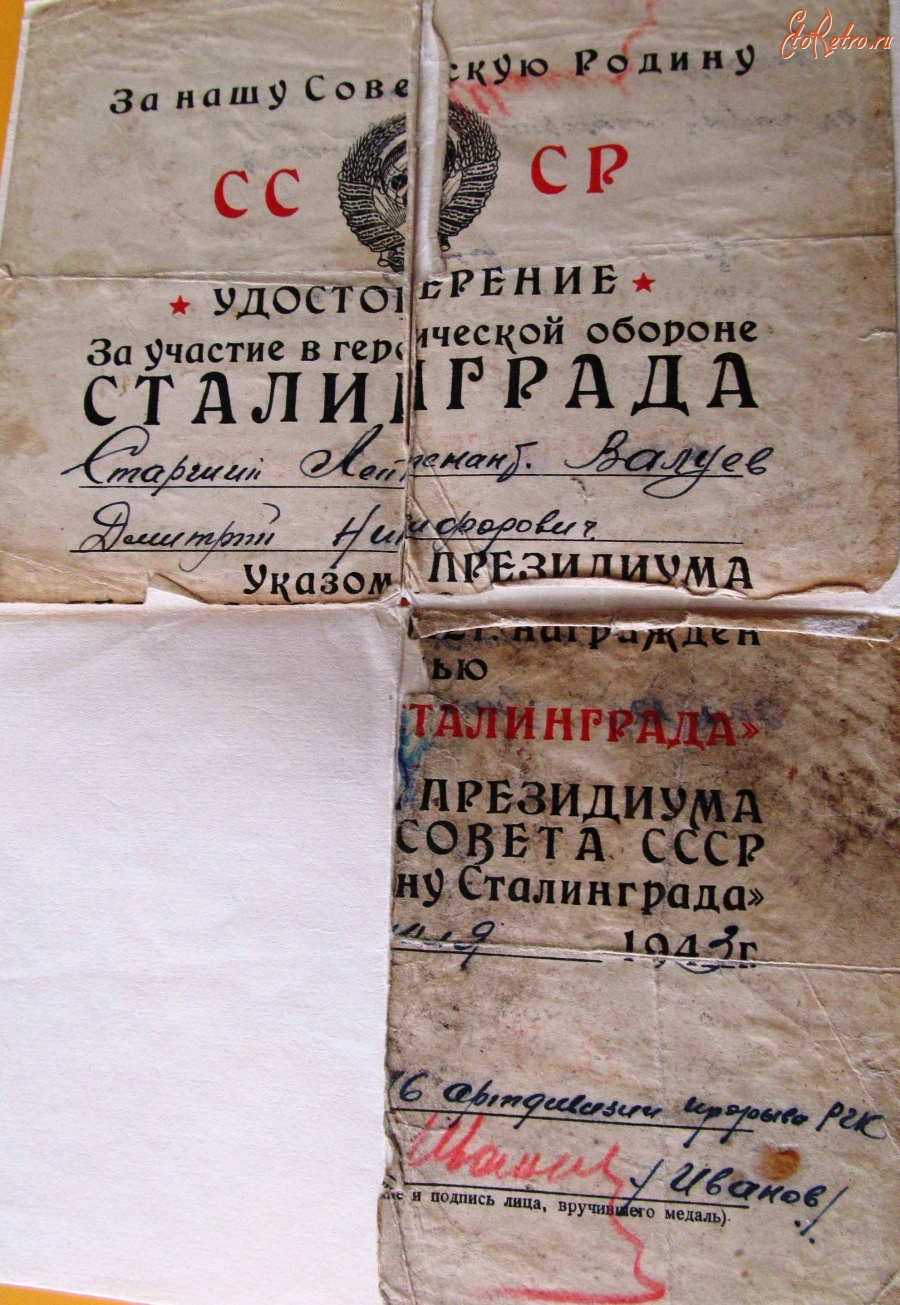 EtoRetro.ru
За нашу Советскую Родину
СССР
УДОСТОВЕРЕНИЕ
За участие в героической обороне
СТАЛИНГРАДА
Старший Лейтенант. Валуев
Дмитрий Никифорович
Указом ПРЕЗИДИУМА
награжден
ью
ТАЛИНГРАДА»
ПРЕЗИДИУМА
СОВЕТА СССР
ну Сталинграда»
1943 г.
6 артдивизии прорыва РГК
/Иванов/
и подпись лица, вручившего медаль).